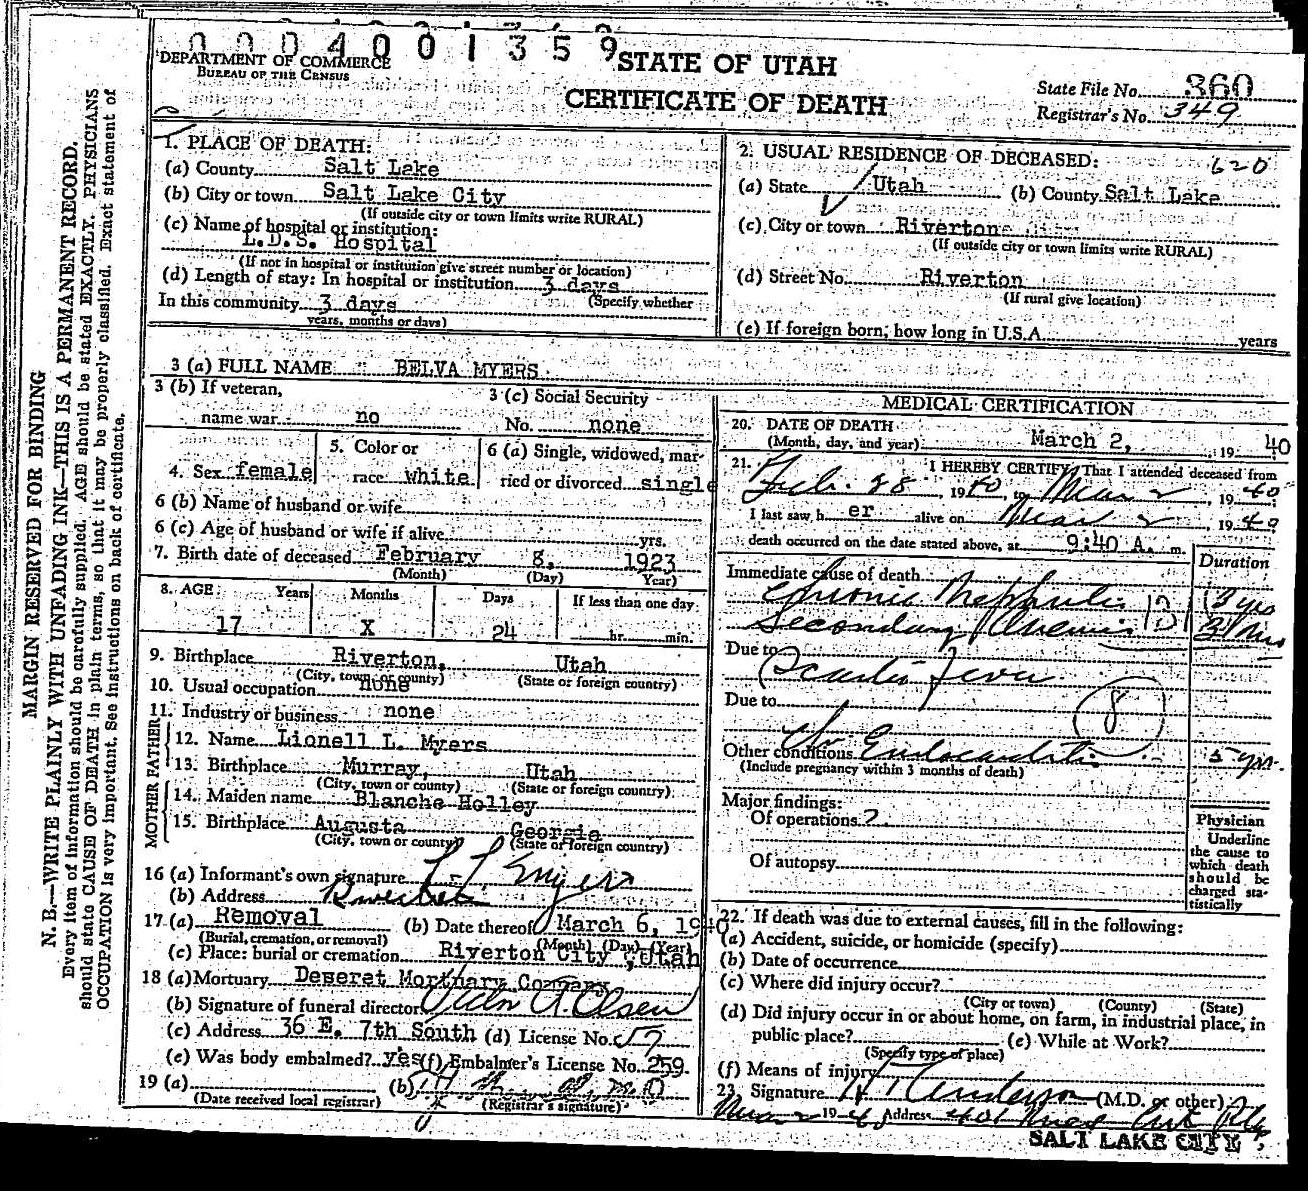 0004001359
DEPARTMENT OF COMMERCE
BUREAU OF THE CENSUS
STATE OF UTAH
CERTIFICATE OF DEATH
State File No. 360
Registrar's No. 349
MARGIN RESERVED FOR BINDING
N. B.—WRITE PLAINLY WITH UNFADING INK—THIS IS A PERMANENT RECORD.
Every item of information should be carefully supplied. AGE should be stated EXACTLY. PHYSICIANS
should state CAUSE OF DEATH in plain terms, so that it may be properly classified. Exact statement of
OCCUPATION is very important. See instructions on back of certificate.
1. PLACE OF DEATH:
(a) County Salt Lake
(b) City or town Salt Lake City
(If outside city or town limits write RURAL)
(c) Name of hospital or institution:
L.D.S. Hospital
(If not in hospital or institution give street number or location)
(d) Length of stay: In hospital or institution 3 days
(Specify whether
In this community 3 days
years, months or days)
2. USUAL RESIDENCE OF DECEASED: 620
(a) State Utah (b) County Salt Lake
(c) City or town Riverton
(If outside city or town limits write RURAL)
(d) Street No. Riverton
(If rural give location)
(e) If foreign born, how long in U.S.A. years
3 (a) FULL NAME BELVA MYERS
3 (b) If veteran,
name war no
3 (c) Social Security
No. none
4. Sex female
5. Color or
race white
6 (a) Single, widowed, mar-
ried or divorced single
6 (b) Name of husband or wife
6 (c) Age of husband or wife if alive yrs.
7. Birth date of deceased February 8, 1923
(Month) (Day) Year)
8. AGE Years Months Days If less than one day
17 X 24 hr. min.
9. Birthplace Riverton, Utah
(City, town or county) (State or foreign country)
10. Usual occupation none
11. Industry or business none
FATHER
12. Name Lionell L. Myers
13. Birthplace Murray, Utah
(City, town or county) (State or foreign country)
MOTHER
14. Maiden name Blanche Holley
15. Birthplace Augusta Georgia
(City, town or county) (State or foreign country)
16 (a) Informant's own signature L. L. Myers
(b) Address Riverton
17. (a) Removal (b) Date thereof March 6, 1940
(Burial, cremation, or removal) (Month) (Day) (Year)
(c) Place: burial or cremation Riverton City, Utah
18 (a) Mortuary Deseret Mortuary Company
(b) Signature of funeral director A. Olsen
(c) Address 36 E. 7th South (d) License No. 57
(e) Was body embalmed? yes (f) Embalmer's License No. 259.
19 (a) (b)
(Date received local registrar) (Registrar's signature)
MEDICAL CERTIFICATION
20. DATE OF DEATH
(Month, day, and year) March 2, 19 40
21. I HEREBY CERTIFY, That I attended deceased from
Feb. 28, 1940, to Mar 2, 1940
I last saw her alive on Mar 2, 1940
death occurred on the date stated above, at 9:40 A. m.
Duration
Immediate cause of death
Chronic Nephritis 3 yrs
Secondary Anemia
Due to
Scarlet Fever
Due to
8
Other conditions Endocarditis 5 yrs.
(Include pregnancy within 3 months of death)
Major findings:
Of operations ?
Of autopsy
Physician
Underline
the cause to
which death
should be
charged sta-
tistically
22. If death was due to external causes, fill in the following:
(a) Accident, suicide, or homicide (specify)
(b) Date of occurrence
(c) Where did injury occur?
(City or town) (County) (State)
(d) Did injury occur in or about home, on farm, in industrial place, in
public place? (e) While at Work?
(Specify type of place)
(f) Means of injury
23. Signature Anderson (M.D. or other)
Mar 2 1940 Address 401 Med Art Bldg,
SALT LAKE CITY